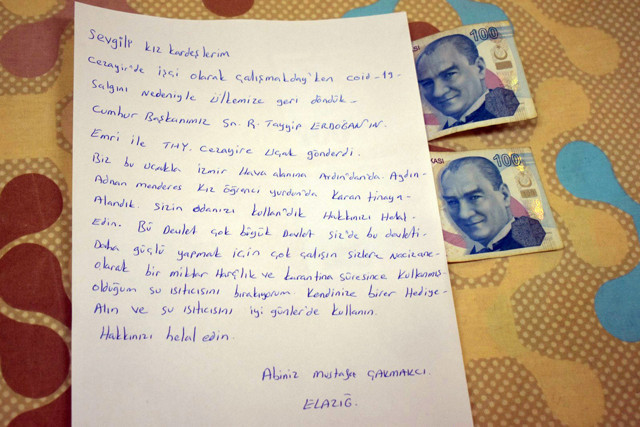 Sevgili kız kardeşlerim
Cezayir'de işçi olarak çalışmaktay'ken coid-19-
Salgını nedeniyle ülkemize geri döndük-
Cumhur Başkanımız Sn. R. Tayyip ERDOĞAN'IN.
Emri ile THY. Cezayire Uçak gönderdi.
Biz bu uçakla izmir Hava alanına Ardın'dan'da Aydın-
Adnan menderes Kız öğrenci yurdun'da Karantinaya-
Alandık. Sizin odanızı kullan'dık Hakkınızı Helal-
Edin. Bu Devlet çok büyük Devlet siz'de bu devleti-
Daha güçlü yapmak için çok çalışın sizlere Nacizane-
olarak bir miktar Harçlık ve karantina süresince kullanmış-
olduğum su ısıtıcısını bırakıyorum. Kendinize birer Hediye-
Alın ve su ısıtıcısını iyi günler'de kullanın.
Hakkınızı helal edin.
Abiniz Mustafa ÇAKMAKCI.
ELAZIĞ.
100
KASI
100